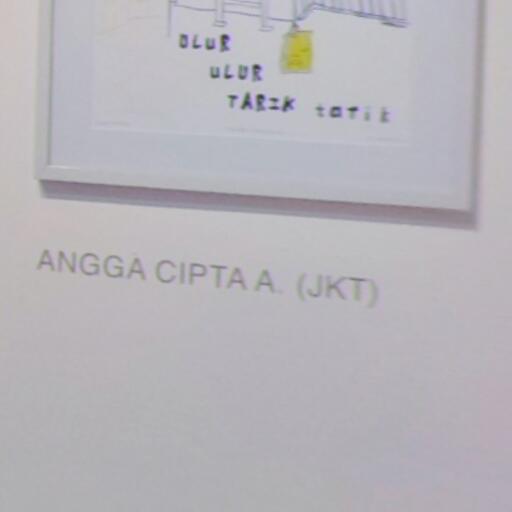 ULUR
ULUR
TARIK tarik
ANGGA CIPTA A. (JKT)